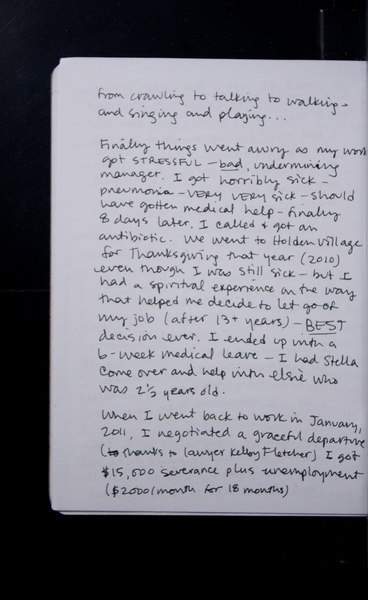 from crawling to talking to walking -
and singing and playing...
Finally things went awry as my work
got STRESSFUL - bad, undermining
manager. I got horribly sick -
pneumonia - VERY VERY sick - should
have gotten medical help - finally
8 days later. I called & got an
antibiotic. We went to Holden Village
for Thanksgiving that year (2010)
even though I was still sick - but I
had a spiritual experience on the way
that helped me decide to let go of
my job (after 13+ years) - BEST
decision ever. I ended up with a
6-week medical leave - I had Stella
come over and help with elsie who
was 2½ years old.
When I went back to work in January,
2011, I negotiated a graceful departure
(thanks to lawyer Kelby Fletcher) I got
$15,000 severance plus unemployment
($2000/month for 18 months)